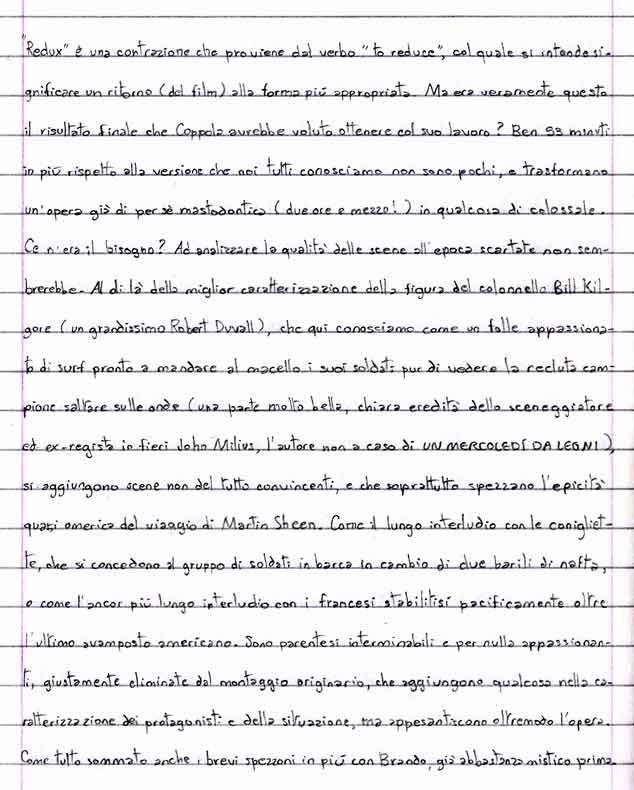 "Redux" è una contrazione che proviene dal verbo "to reduce", col quale si intende si-
gnificare un ritorno (del film) alla forma più appropriata. Ma era veramente questo
il risultato finale che Coppola avrebbe voluto ottenere col suo lavoro? Ben 53 minuti
in più rispetto alla versione che noi tutti conosciamo non sono pochi, e trasformano
un'opera già di per sè mastodontica (due ore e mezzo!) in qualcosa di colossale.
Ce n'era il bisogno? Ad analizzare la qualità delle scene all'epoca scartate non sem-
brerebbe. Al di là della miglior caratterizzazione della figura del colonnello Bill Kil-
gore (un grandissimo Robert Duvall), che qui conosciamo come un folle appassiona-
to di surf pronto a mandare al macello i suoi soldati pur di vedere la recluta cam-
pione saltare sulle onde (una parte molto bella, chiara eredità dello sceneggiatore
ed ex-regista in fieri John Milius, l'autore non a caso di UN MERCOLEDÍ DA LEONI),
si aggiungono scene non del tutto convincenti, e che soprattutto spezzano l'epicità
quasi omerica del viaggio di Martin Sheen. Come il lungo interludio con le conigliet-
te, che si concedono al gruppo di soldati in barca in cambio di due barili di nafta,
o come l'ancor più lungo interludio con i francesi stabilitisi pacificamente oltre
l'ultimo avamposto americano. Sono parentesi interminabili e per nulla appassionan-
ti, giustamente eliminate dal montaggio originario, che aggiungono qualcosa nella ca-
ratterizzazione dei protagonisti e della situazione, ma appesantiscono oltremodo l'opera.
Come tutto sommato anche i brevi spezzoni in più con Brando, già abbastanza mistico prima.